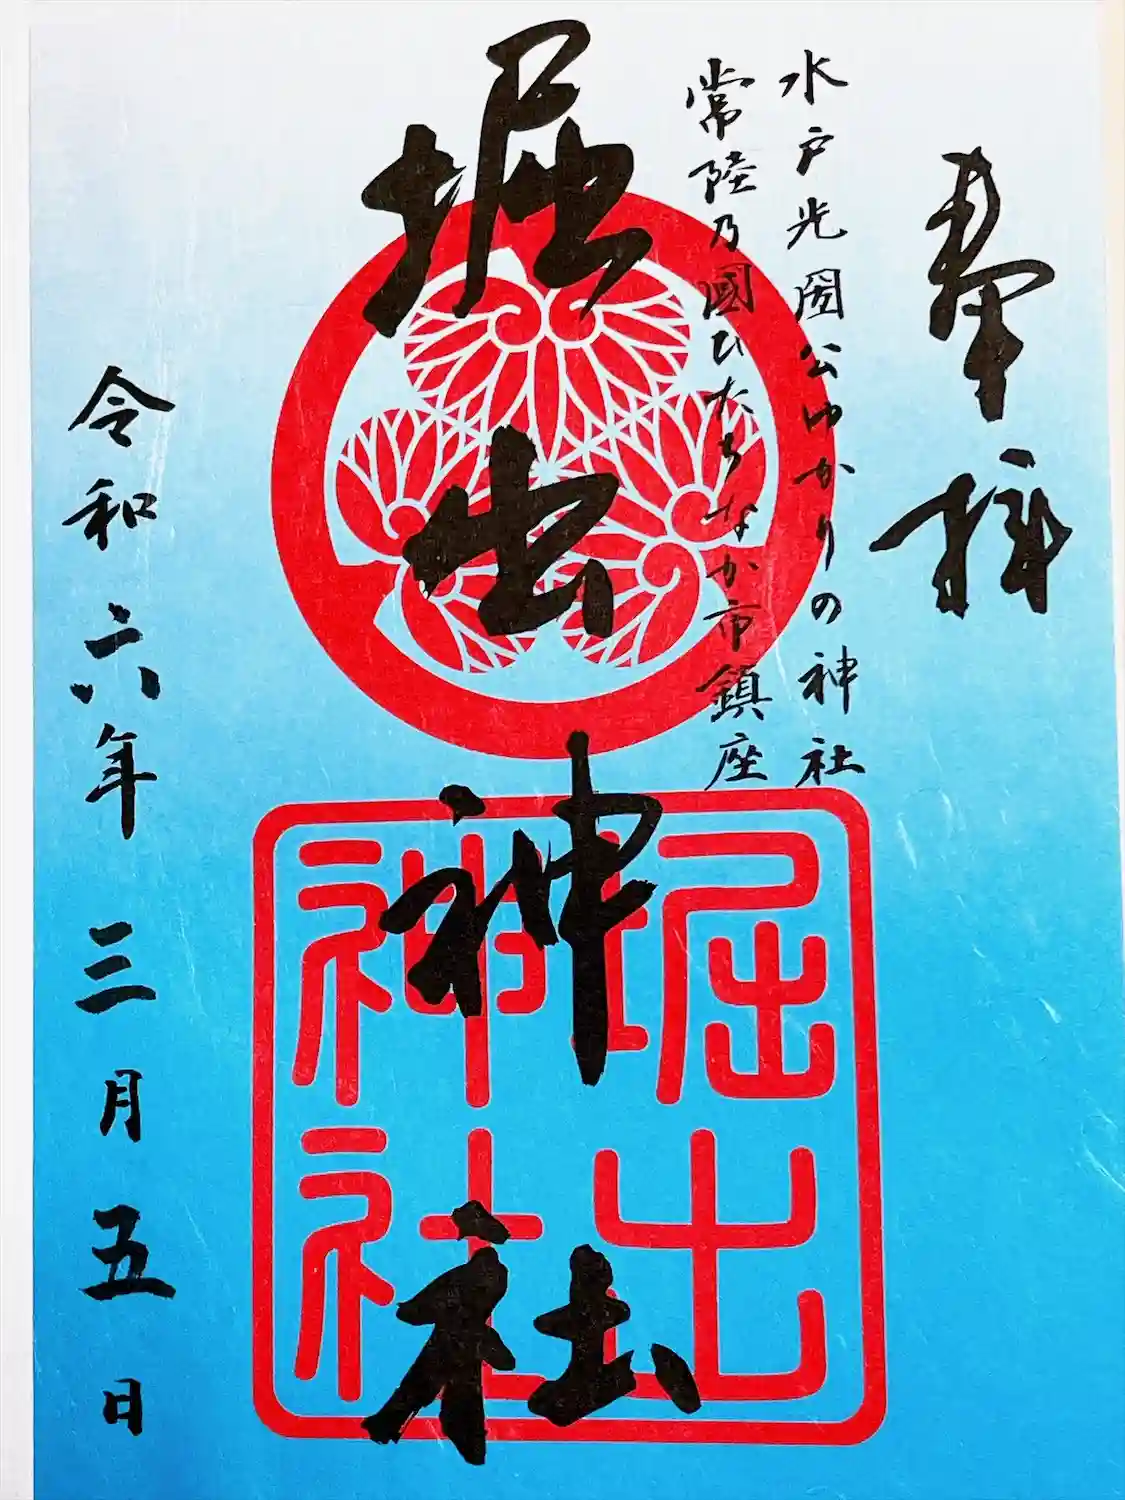 奉拝
水戸光圀公ゆかりの神社
常陸乃國ひたちなか市鎮座
堀出神社
堀出
神社
令和六年三月五日